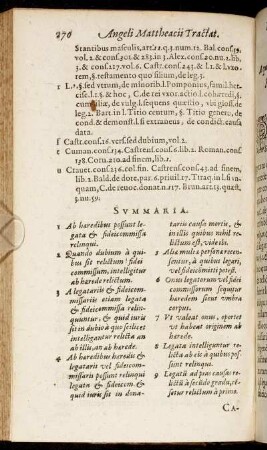 270 Angeli Mattheacii Tractat.
Stantibus masculis, art. 21. q. 3. num. 12. Bal. cons. 39.
vol. 2. & cons. 201. & 253. in 3. Alex. cons. 20. nu. lib.
3. & cons. 127. vol. 6. Castr. cons. 243. & l. 1. & l. uxo-
rem, §. testamento quo situm, de leg. 3.
r L. 1. §. sed vtrum, de minorib. l. Pomponius, famil. hercisc.
l. 1. §. & hoc, C. de rei vxor. actio. l. cohæredi, §.
cum filiæ, de vulg. l. sequens quæstio, vbi gloss. de
leg. 2. Bart. in l. Titio centum, §. Titio genero, de
cond. & demonst. l. si extraneus, de condict. causa
data.
f Castr. cons. 26. vers. sed dubium, vol. 2.
t Cuman. cons. 134. Castrens. cons. 6. lib. 2. Roman. cons.
138. Cotu. 210. ad finem, lib. 1.
u Crauet. cons. 236. col. fin. Castrens. cons. 43. ad finem,
lib. 2. Bald. de dote, par. 6. priuil. 27. Tiraq. in l. si un-
quam, C. de reuoc. donat. n. 117. Brun. art. 13. quæst.
3. nu. 59.
SUMMARIA.
1 Ab haredibus possunt lega-
ta & fideicommissa
relinqui.
2 Quando dubium à qui-
bus sit relictum fidei
commissum, intelligitur
ab harede relictum.
3 A legatariis & fideicom-
missariis etiam legata
& fideicommissa relin-
quuntur, & quid iuris
sit in dubio à quo scilicet
intelligantur relicta an
ab illis, an ab harede.
4 Ab haredibus heredis &
legatarii vel fideicom-
missarii possunt relinqui
legata & fideicom. &
quid iuris sit in dona-
tario causa mortis, &
in illis quibus nihil re-
lictum est, videlis.
5 Aliæ multæ personæ recen-
sentur, à quibus legari,
vel fideicōmitti potest.
6 Onus legatorum vel fidei-
commissi sequitur
haredem sicut vmbra
corpus.
7 Vt valeat onus, oportet
vt habeat originem ab
harede.
8 Legata intelliguntur re-
licta ab eis à quibus pos-
sunt relinqui.
9 Legati ad pias causas re-
licti à secūdo gradu, re-
lictum à primo.
CA-